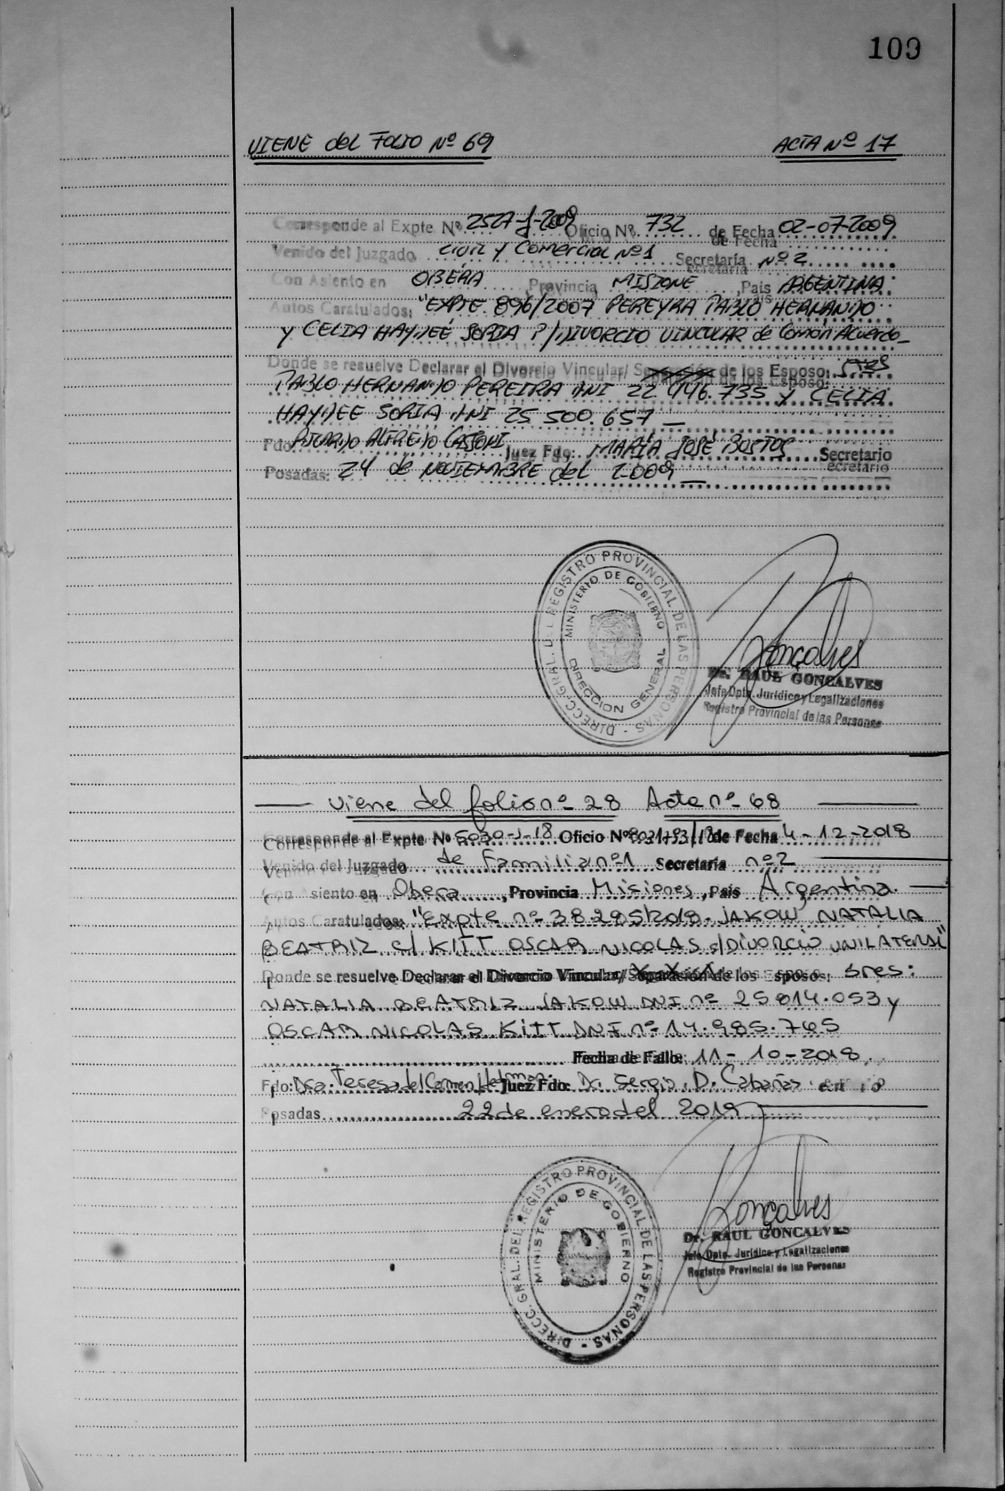 109
VIENE del FOLIO Nº 69 ACTA Nº 17
Corresponde al Expte Nº 2527-J-2009 Oficio Nº 732 de Fecha 02-07-2009
Venido del Juzgado civil y Comercial Nº1 Secretaría Nº 2
Con Asiento en OBERA Provincia MISIONE País ARGENTINA
Autos Caratulados: "EXPTE 896/2007 PEREYRA PABLO HERNANDO
y CELIA HAYDEE SORIA P/DIVORCIO VINCULAR de Común Acuerdo
Donde se resuelve Declarar el Divorcio Vincular/ de los Esposo: Sres
PABLO HERNANDO PEREIRA DNI 22 446.735 y CELIA
HAYDEE SORIA DNI 25 500.657
Fdo: RICARDO ALFREDO Juez Fdo: MARÍA JOSÉ BUSTOS Secretario
Posadas: 24 de NOVIEMBRE del 2.009
DIRECC. GRAL. DEL REGISTRO PROVINCIAL DE LAS PERSONAS
MINISTERIO DE GOBIERNO
DIRECCION GENERAL
Gonçalves
Dr. RAUL GONCALVES
Jefe Dpto. Jurídico y Legalizaciones
Registro Provincial de las Personas
Viene del folio nº 28 Acta nº 68
Corresponde al Expte Nº 5030-J-18 Oficio Nº de Fecha 4-12-2018
Venido del Juzgado de Familia nº1 Secretaría nº2
Con Asiento en Obera, Provincia Misiones, País Argentina.
Autos Caratulados: "Expte nº 38285/2018. JAKOW NATALIA
BEATRIZ c/ KITT OSCAR NICOLAS s/DIVORCIO UNILATERAL"
Donde se resuelve Declarar el Divorcio Vincular/Separación de los Esposos: Sres:
NATALIA BEATRIZ JAKOW DNI nº 25814.053 y
OSCAR NICOLAS KITT DNI nº 14.985.765
Fecha de Fallo: 11-10-2018.
Fdo: Dra. Teresa del Carmen Juez Fdo: Dr. Sergio. D. Cabañas
Posadas 22 de enero del 2019
DIRECC. GRAL. DEL REGISTRO PROVINCIAL DE LAS PERSONAS
MINISTERIO DE GOBIERNO
Gonçalves
Dr. RAUL GONCALVES
Jefe Dpto. Jurídico y Legalizaciones
Registro Provincial de las Personas